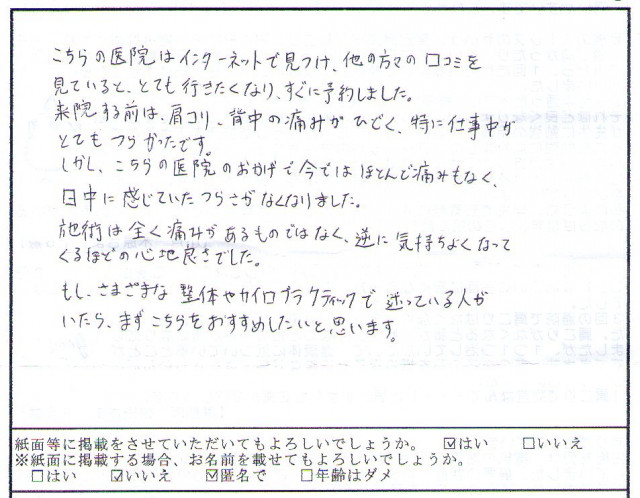 こちらの医院はインターネットで見つけ、他の方々の口コミを
見ていると、とても行きたくなり、すぐに予約しました。
来院する前は、肩コリ、背中の痛みがひどく、特に仕事中が
とてもつらかったです。
しかし、こちらの医院のおかげで今ではほとんど痛みもなく、
日中に感じていたつらさがなくなりました。
施術は全く痛みがあるものではなく、逆に気持ちよくなって
くるほどの心地良さでした。
もし、さまざまな整体やカイロプラクティックで迷っている人が
いたら、まずこちらをおすすめしたいと思います。
紙面等に掲載をさせていただいてもよろしいでしょうか。 ☑はい □いいえ
※紙面に掲載する場合、お名前を載せてもよろしいでしょうか。
□はい ☑いいえ ☑匿名で □年齢はダメ